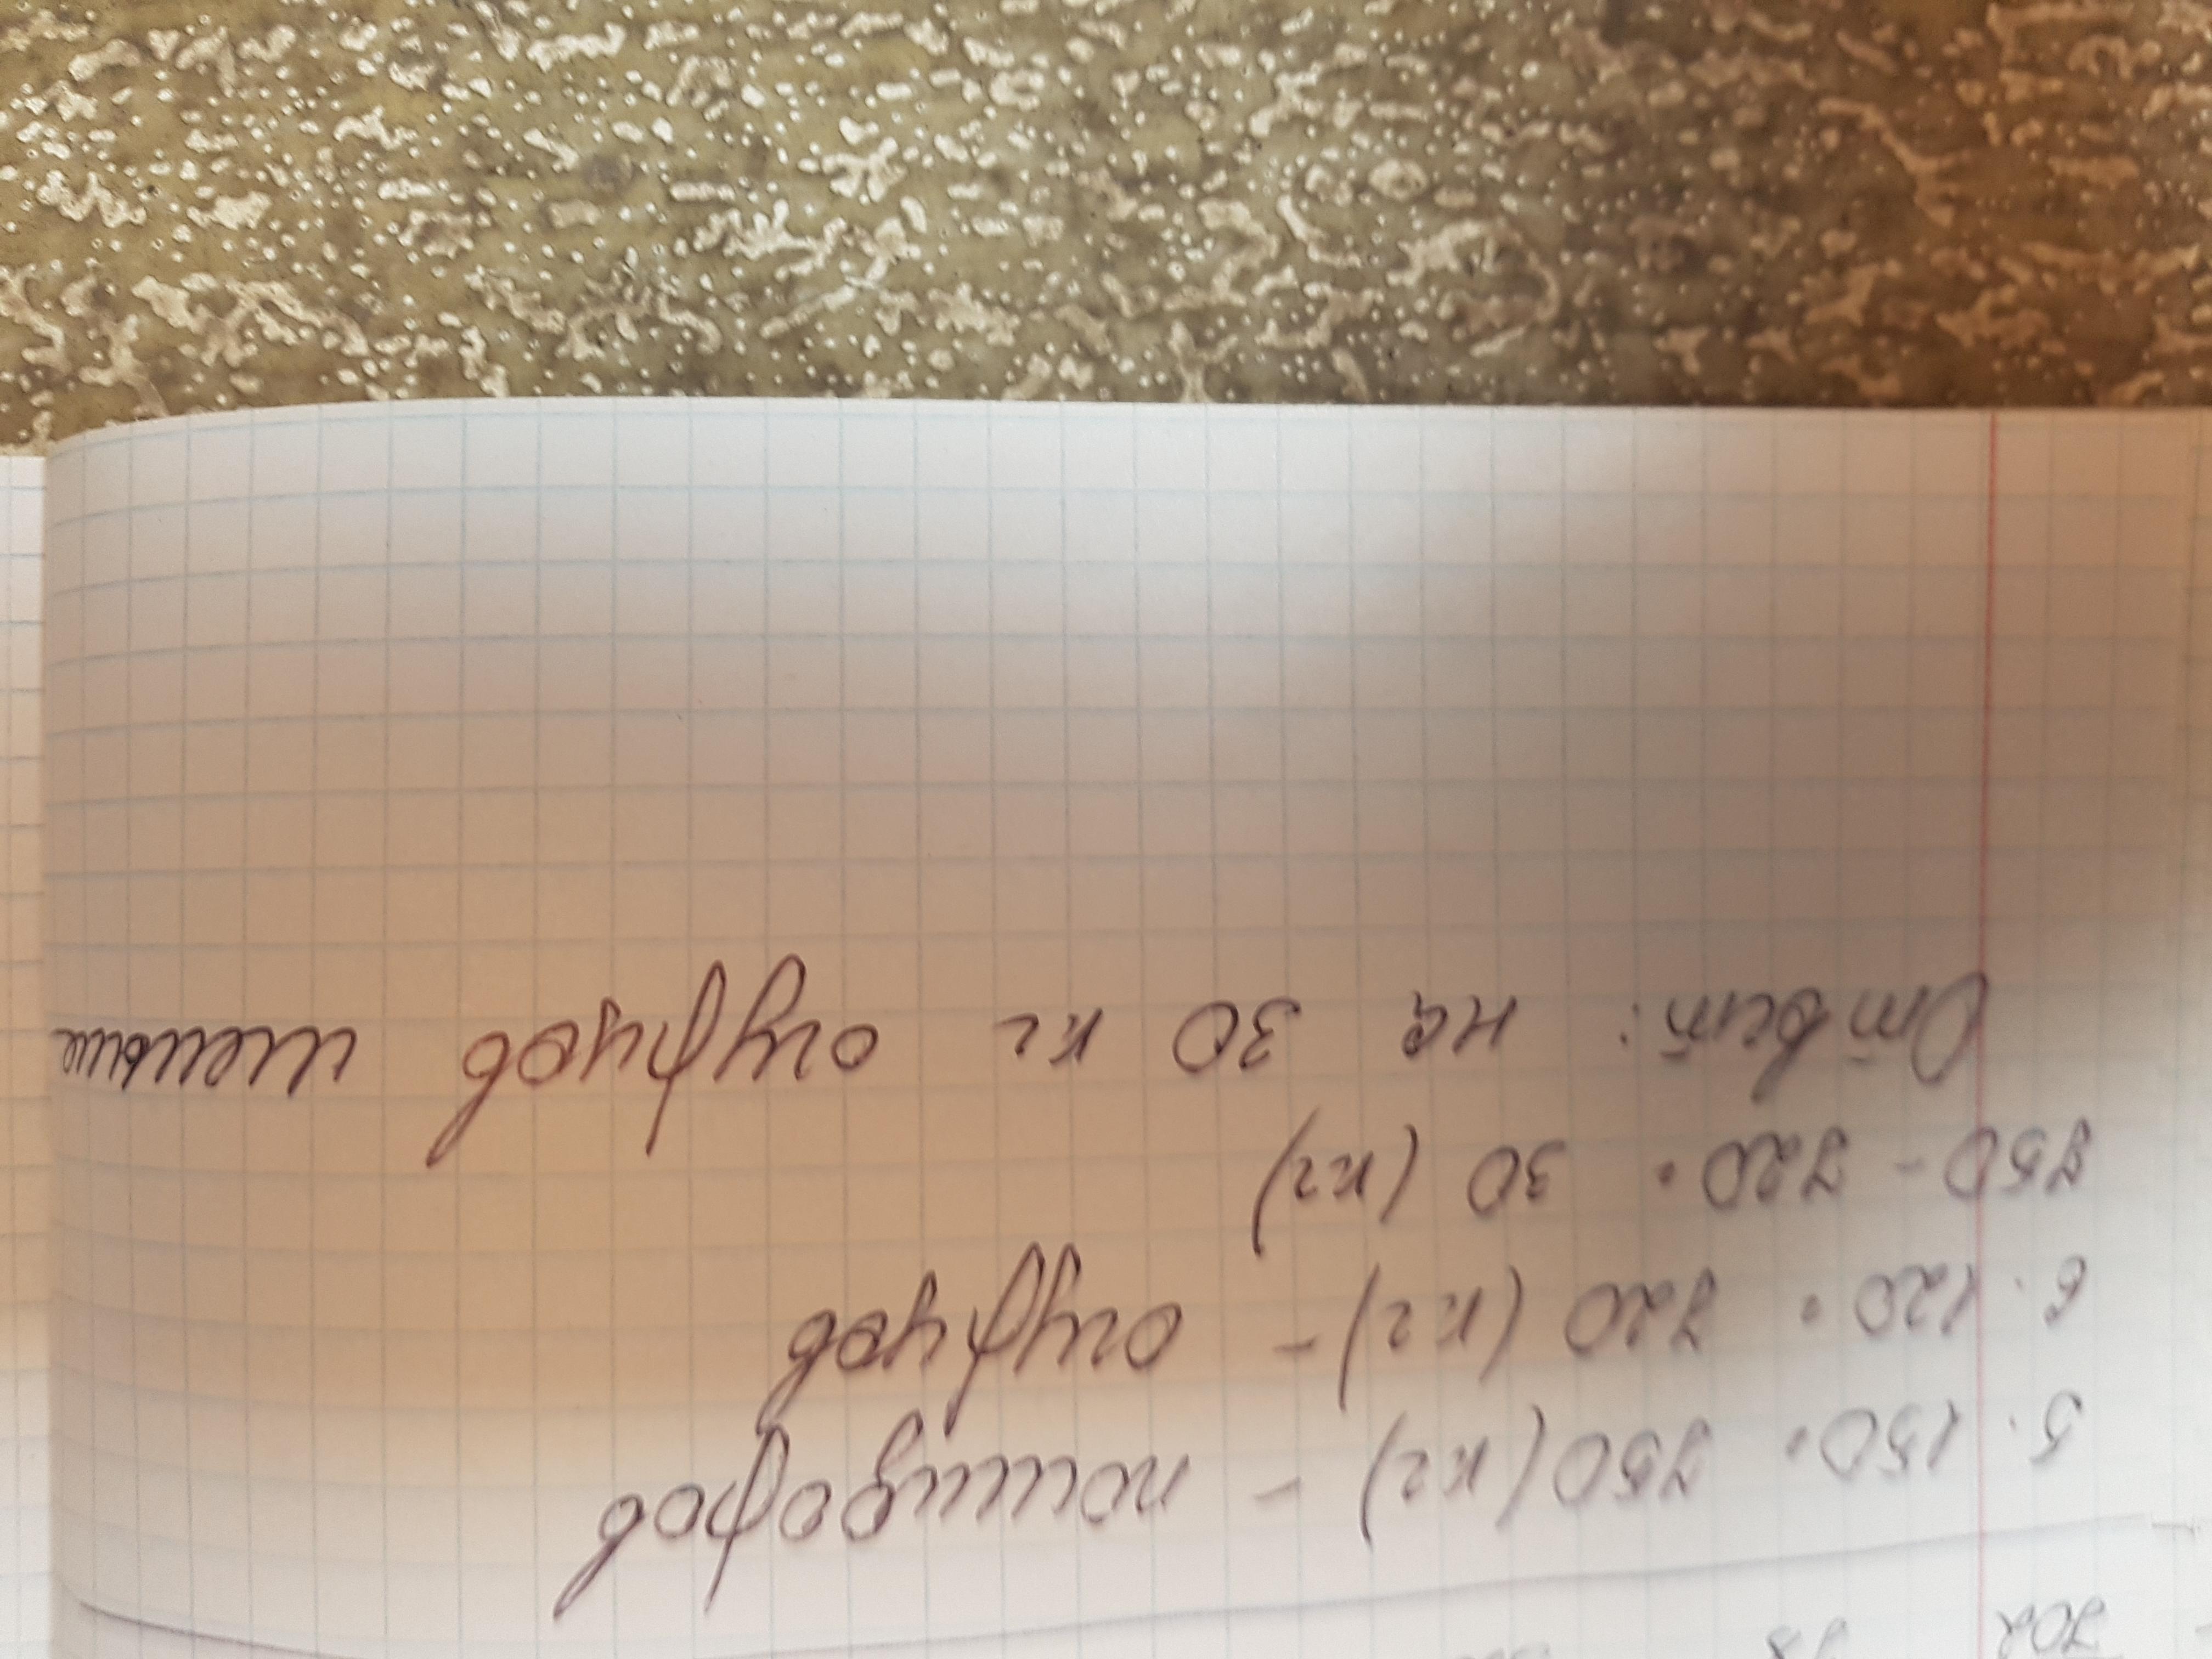 702 78
5 · 150 = 750 (кг) - помидоров
6 · 120 = 720 (кг) - огурцов
750 - 720 = 30 (кг)
Ответ: на 30 кг огурцов меньше